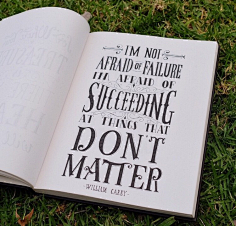 I'M NOT
AFRAID OF FAILURE
I'M AFRAID OF
SUCCEEDING
AT THINGS THAT
DON'T
MATTER
WILLIAM CAREY